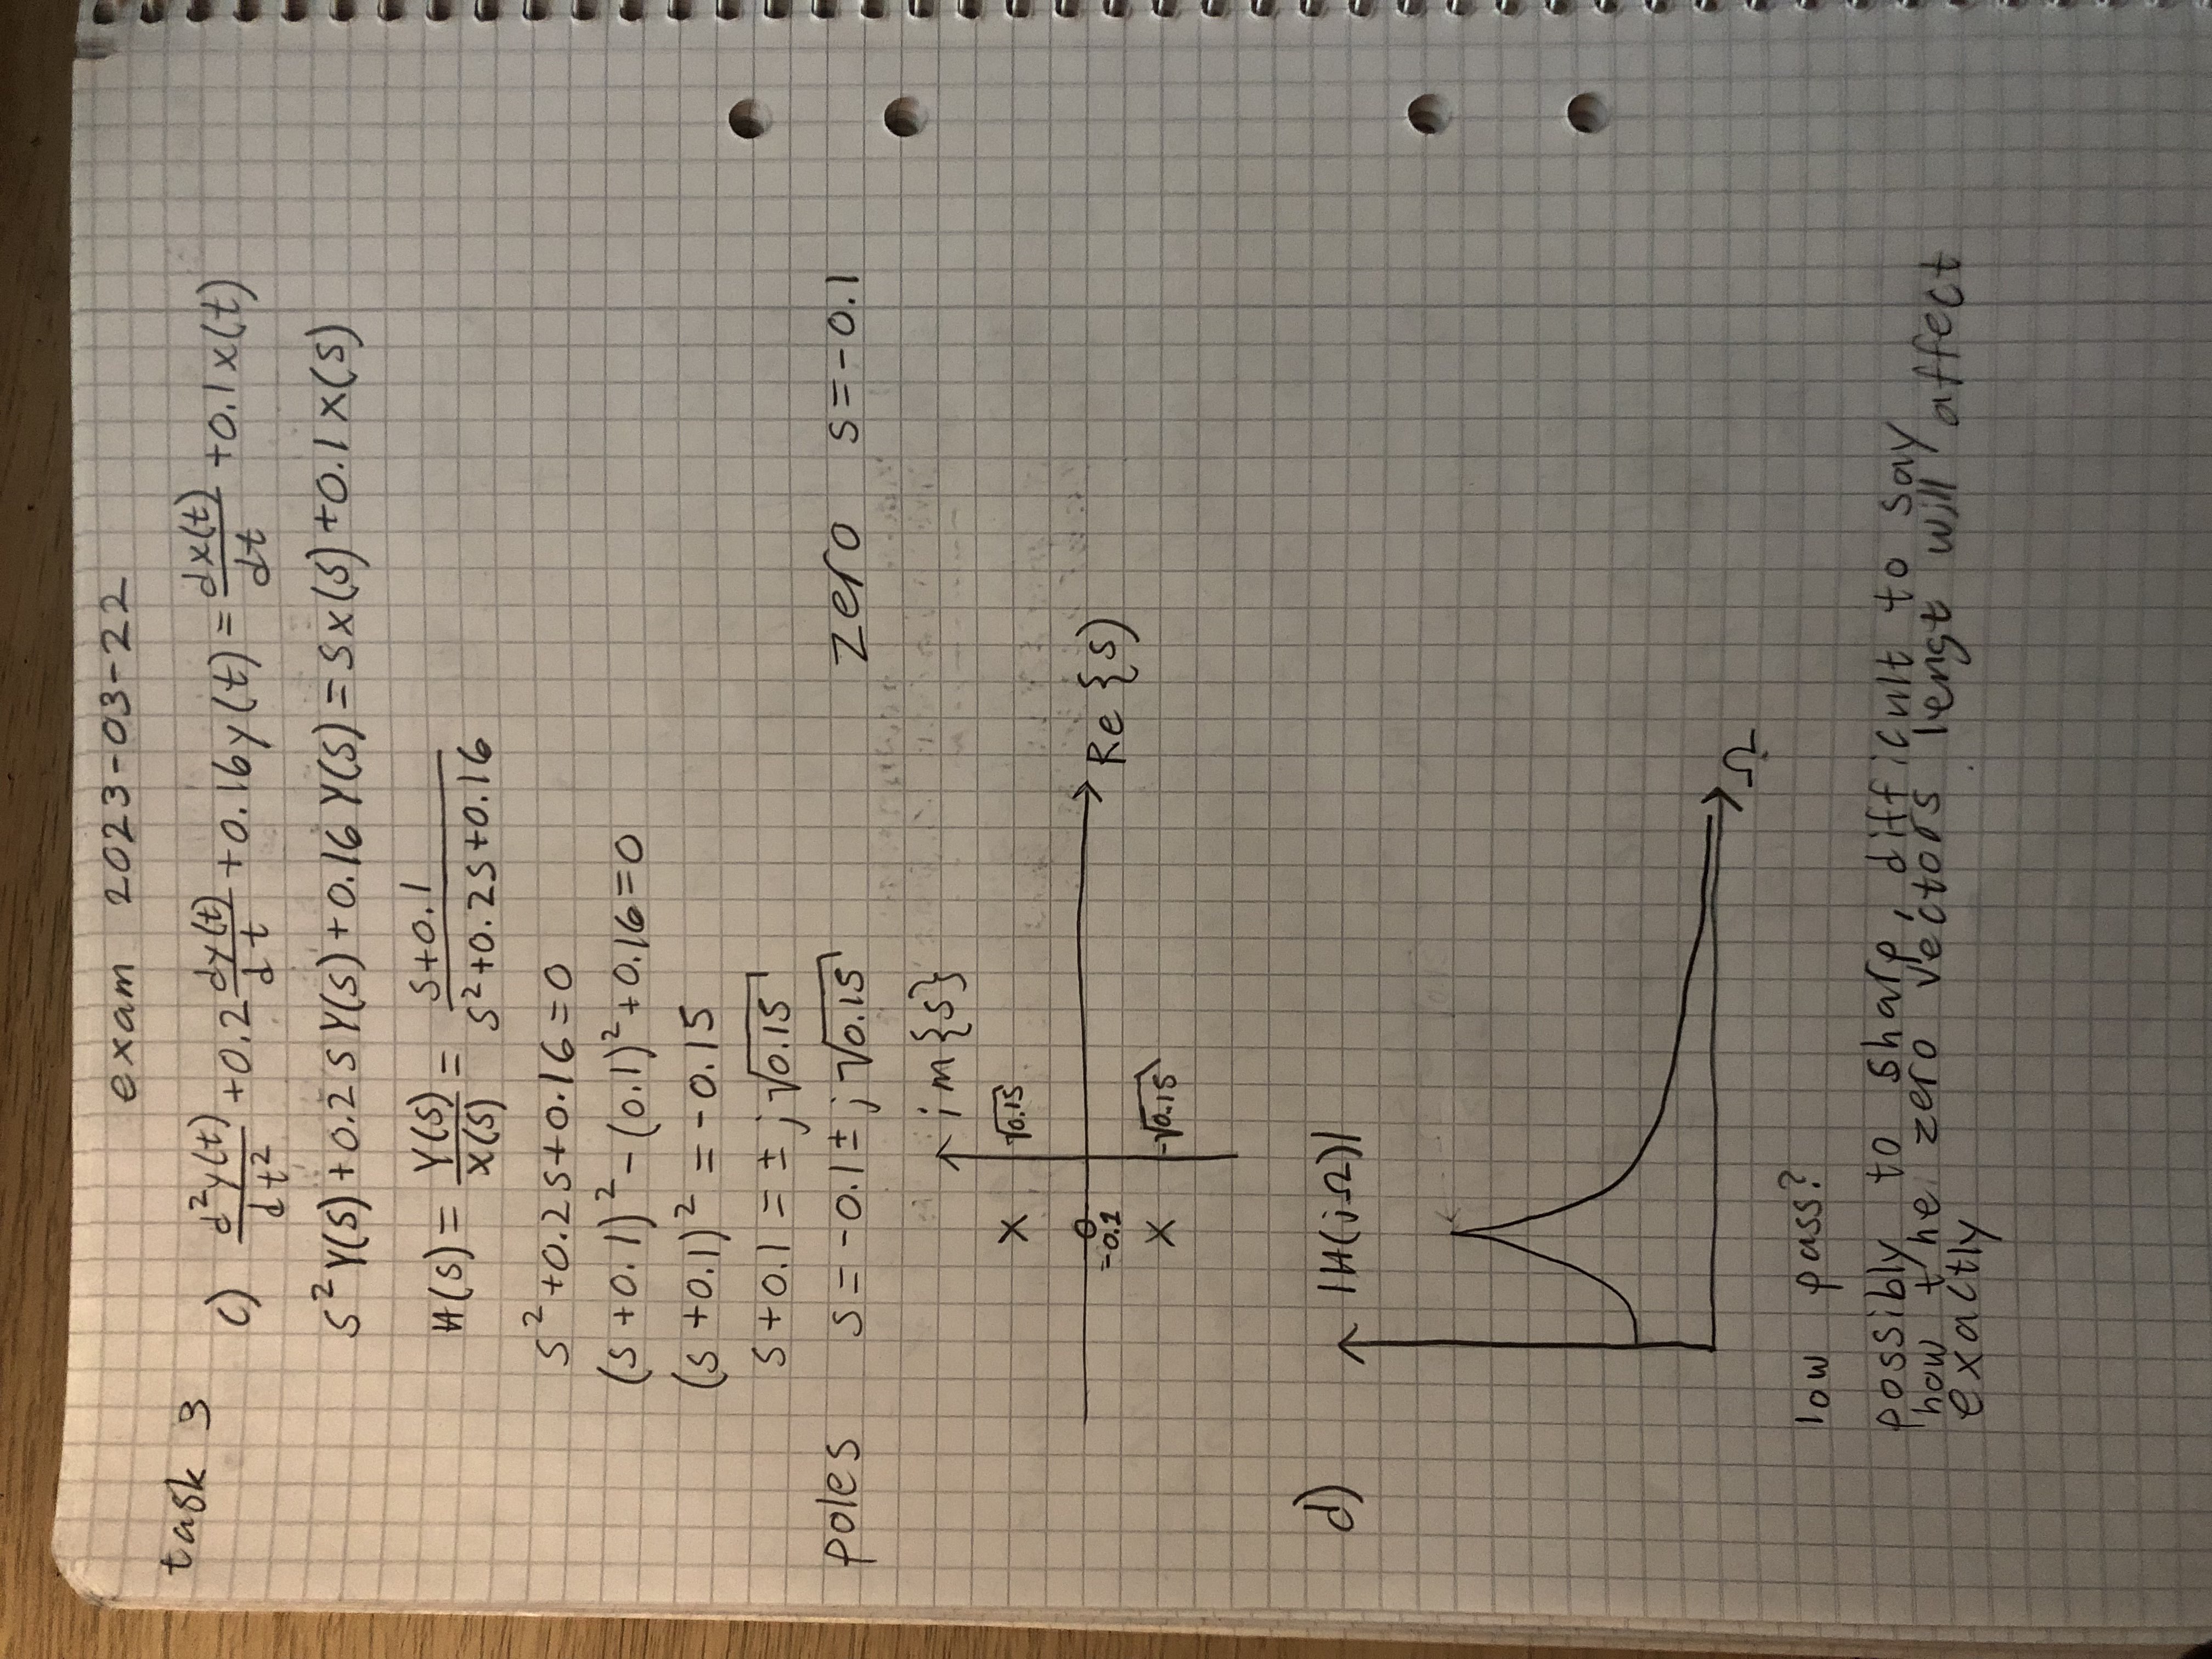 exam 2023-03-22
task 3
c) d²y(t)/dt² + 0.2 dy(t)/dt + 0.16y(t) = dx(t)/dt + 0.1x(t)
s²Y(s) + 0.2sY(s) + 0.16Y(s) = sx(s) + 0.1x(s)
H(s) = Y(s)/X(s) = (s+0.1)/(s²+0.2s+0.16)
s² + 0.2s + 0.16 = 0
(s + 0.1)² - (0.1)² + 0.16 = 0
(s + 0.1)² = -0.15
s + 0.1 = ± j√0.15
poles s = -0.1 ± j√0.15 zero s = -0.1
im{s}
× √0.15
o
-0.1
Re{s)
× -√0.15
d) |H(jΩ)|
Ω
low pass?
possibly to sharp, difficult to say
how the zero vectors lengt will affect
exactly